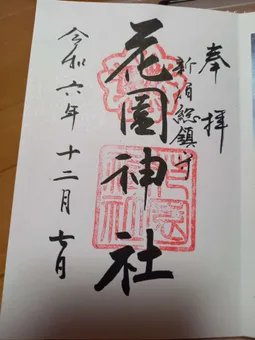 奉拝
新宿総鎮守
花園神社
令和六年十二月七日
花園神社